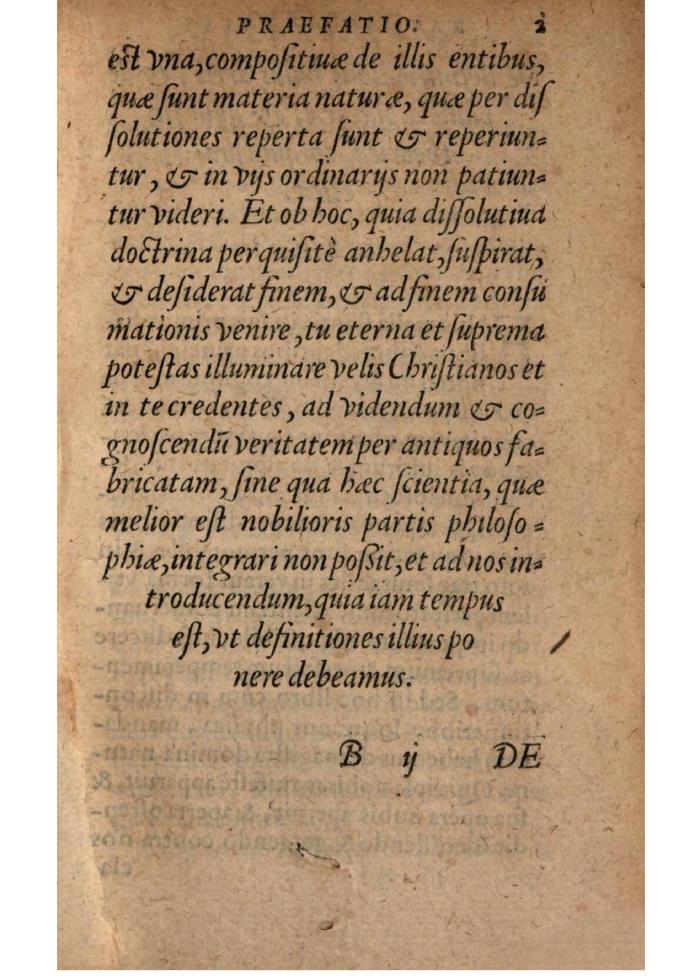 PRAEFATIO. 2
est vna, compositiuæ de illis entibus,
quæ sunt materia naturæ, quæ per dis
solutiones reperta sunt & reperiun=
tur, & in vijs ordinarijs non patiun=
tur videri. Et ob hoc, quia dissolutiua
doctrina perquisitè anhelat, suspirat,
& desiderat finem, & ad finem consū
mationis venire, tu eterna et suprema
potestas illuminare velis Christianos et
in te credentes, ad videndum & co=
gnoscendū veritatem per antiquos fa=
bricatam, sine qua hæc scientia, quæ
melior est nobilioris partis philoso=
phiæ, integrari non possit, et ad nos in=
troducendum, quia iam tempus
est, vt definitiones illius po
nere debeamus.
B ij DE